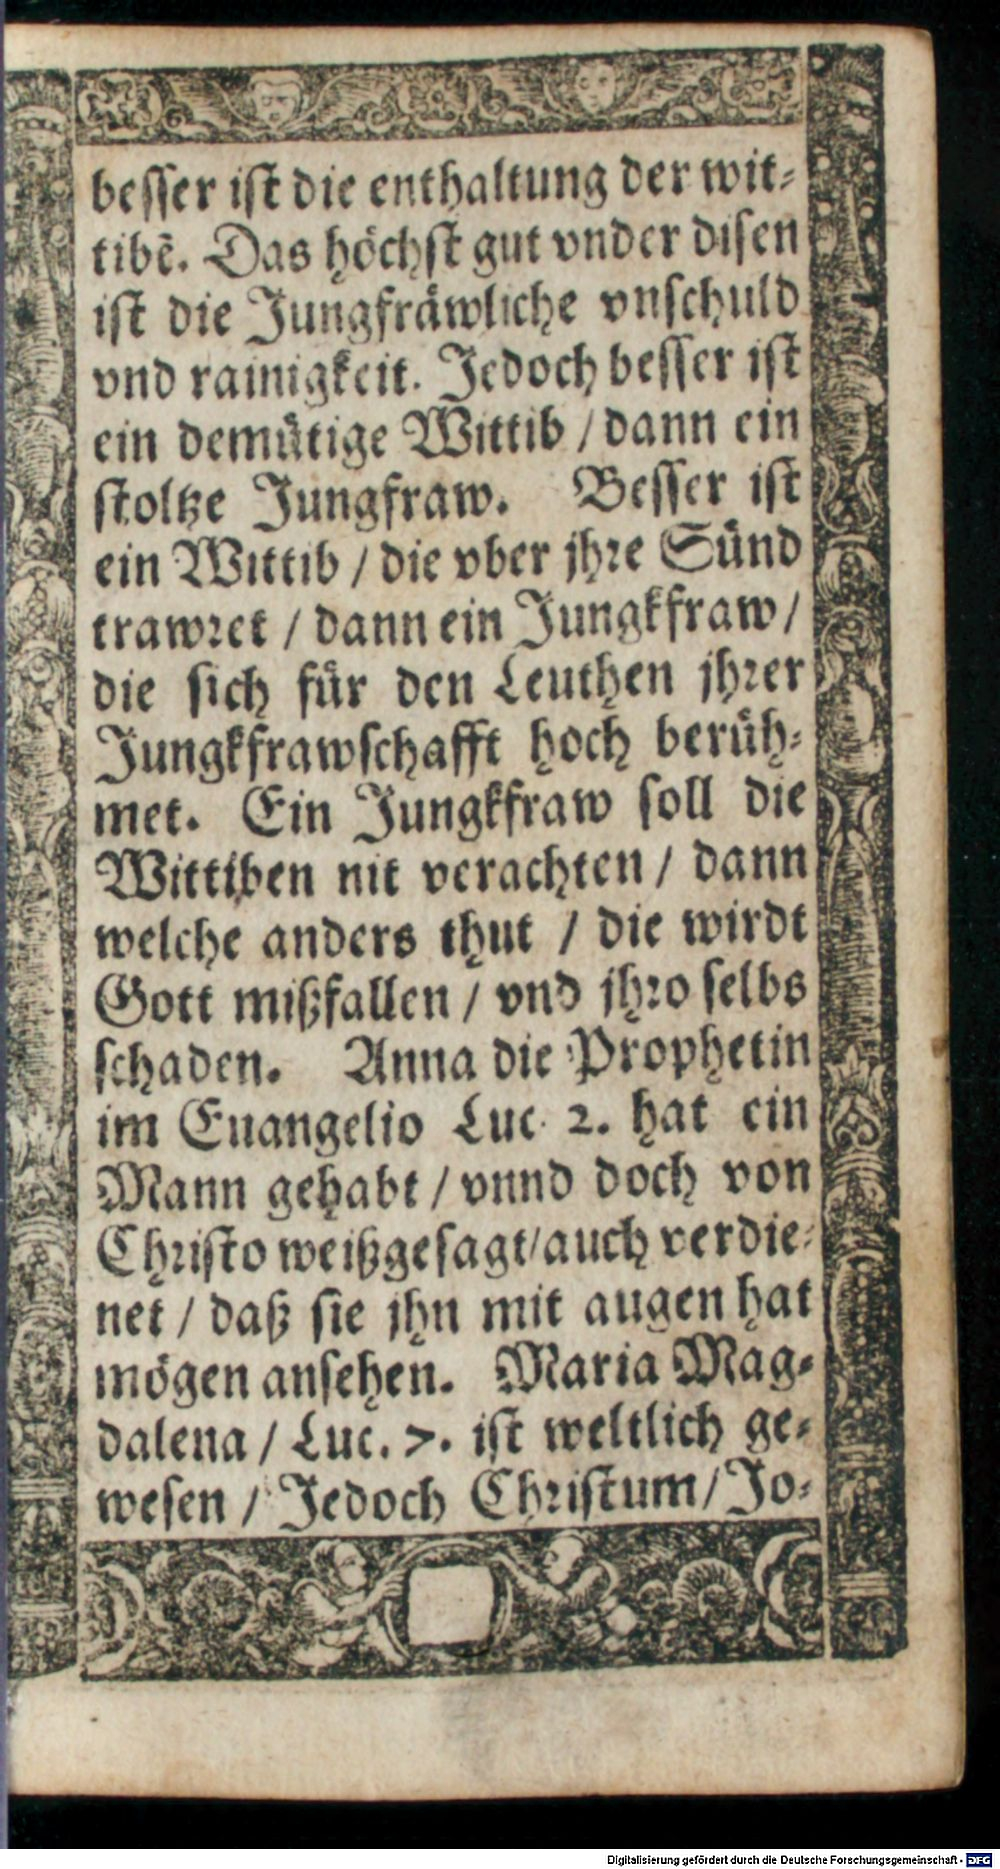 besser ist die enthaltung der wit-
tibẽ. Das höchst gut vnder disen
ist die Jungfräwliche vnschuld
vnd rainigkeit. Jedoch besser ist
ein demütige Wittib / dann ein
stoltze Jungfraw. Besser ist
ein Wittib / die vber jhre Sünd
trawret / dann ein Jungkfraw /
die sich für den Leuthen jhrer
Jungkfrawschafft hoch berüh-
met. Ein Jungkfraw soll die
Wittiben nit verachten / dann
welche anders thut / die wirdt
Gott mißfallen / vnd jhro selbs
schaden. Anna die Prophetin
im Euangelio Luc. 2. hat ein
Mann gehabt / vnnd doch von
Christo weißgesagt / auch verdie-
net / daß sie jhn mit augen hat
mögen ansehen. Maria Mag-
dalena / Luc. 7. ist weltlich ge-
wesen / Jedoch Christum / Jo-
Digitalisierung gefördert durch die Deutsche Forschungsgemeinschaft - DFG